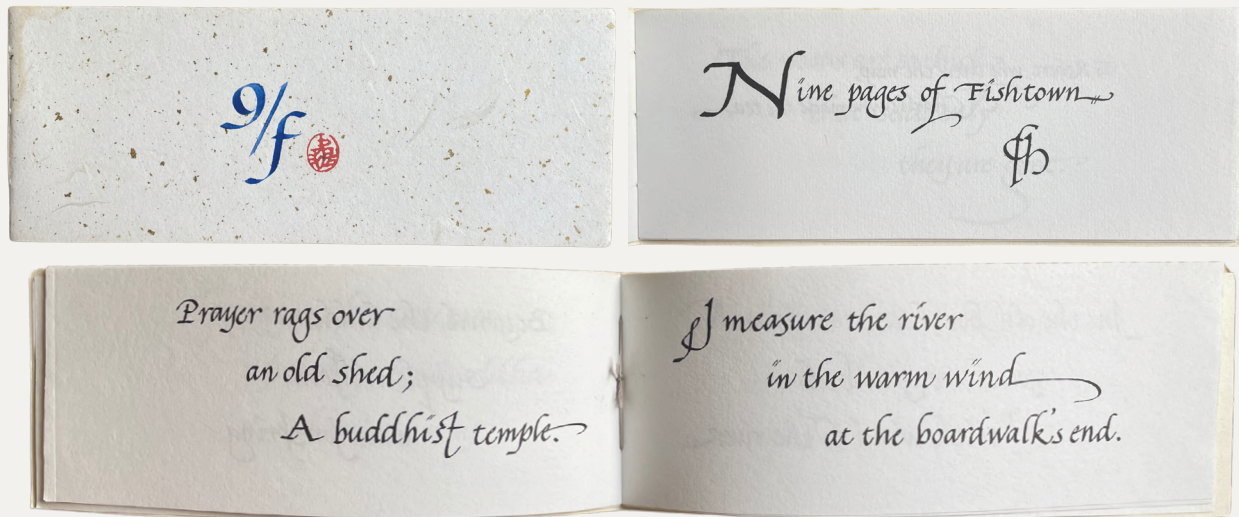 9/f
Nine pages of Fishtown
Prayer rags over
an old shed;
A buddhist temple.
I measure the river
in the warm wind
at the boardwalk's end.